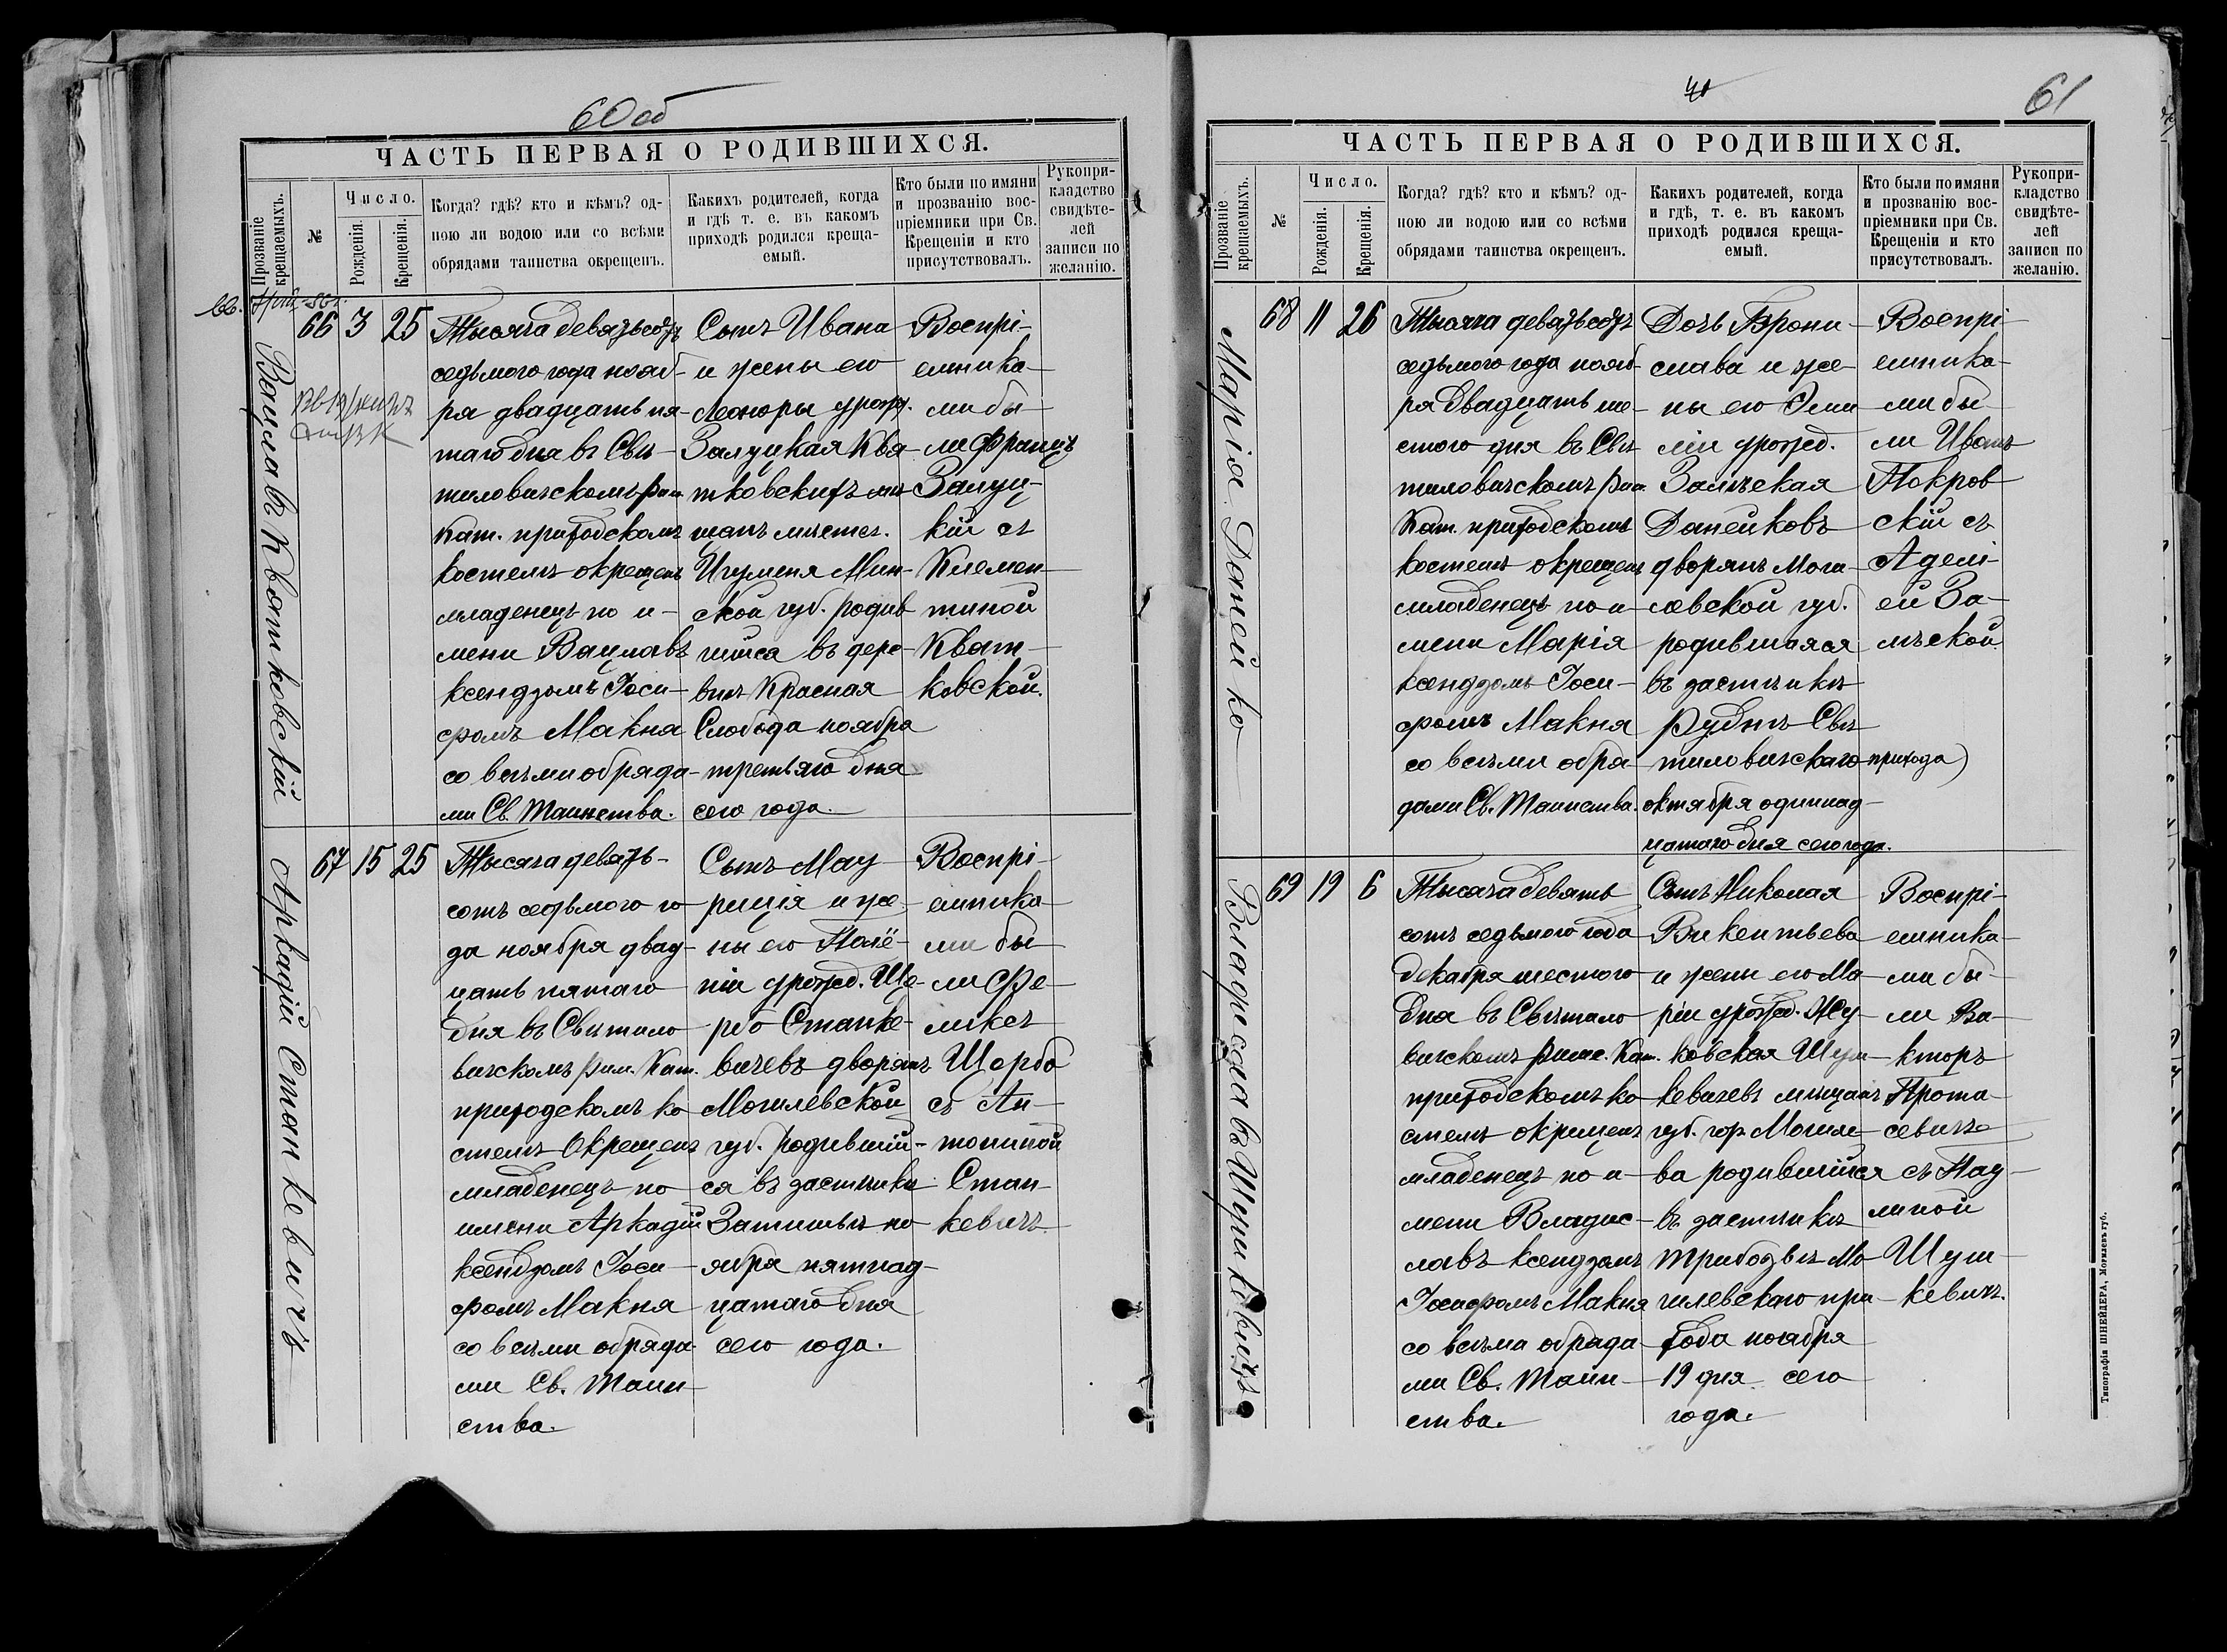 60 об
ЧАСТЬ ПЕРВАЯ О РОДИВШИХСЯ.
Прозваніе крещаемыхъ.
№
Число.
Рожденія.
Крещенія.
Когда? гдѣ? кто и кѣмъ? од-
ною ли водою или со всѣми
обрядами таинства окрещенъ.
Какихъ родителей, когда
и гдѣ т. е. въ какомъ
приходѣ родился креща-
емый.
Кто были по имяни
и прозванію вос-
пріемники при Св.
Крещеніи и кто
присутствовалъ.
Рукопри-
кладство
свидѣте-
лей
записи по
желанію.
Вацлавъ Квятковскій
66 3 25
Тысяча девятьсотъ
седьмого года нояб-
ря двадцать пя-
таго дня въ Свѣ-
тиловичскомъ Рим
Кат. приходскомъ
костелѣ окрещенъ
младенецъ по и-
мени Вацлавъ
ксендзомъ Іоси-
фомъ Макня
со всѣми обряда-
ми Св. Таинства.
Сынъ Ивана
и жены его
Леоноры урожд.
Залуцкая Квя-
тковскихъ мѣ-
щанъ мѣстеч.
Игуменя Мин-
ской губ. родив
шійся въ дере-
внѣ Красная
Слобода ноября
третьяго дня
сего года.
Воспрі-
емника-
ми бы-
ли Францъ
Залуц-
кій съ
Клемен-
тиной
Квят-
ковской.
Аркадій Станкевичъ
67 15 25
Тысяча девять-
сотъ седьмого го-
да ноября двад-
цать пятаго
дня въ Свѣтило
вичскомъ Рим. Кат.
приходскомъ ко
стелѣ окрещенъ
младенецъ по
имени Аркадій
ксендзомъ Іоси-
фомъ Макня
со всѣми обряда-
ми Св. Таин-
ства.
Сынъ Мау
риція и же-
ны его
ніи урожд. Ще-
рбо Станке-
вичевъ дворянъ
Могилевской
губ. родившій-
ся въ застѣнкѣ
Затишьѣ но-
ября пятнад-
цатаго дня
сего года.
Воспрі-
емника-
ми бы-
ли Фе-
ликсъ
Щербо
съ Ан-
тониной
Стан-
кевичъ.
61
ЧАСТЬ ПЕРВАЯ О РОДИВШИХСЯ.
Прозваніе крещаемыхъ.
№
Число.
Рожденія.
Крещенія.
Когда? гдѣ? кто и кѣмъ? од-
ною ли водою или со всѣми
обрядами таинства окрещенъ.
Какихъ родителей, когда
и гдѣ, т. е. въ какомъ
приходѣ родился креща-
емый.
Кто были по имяни
и прозванію вос-
пріемники при Св.
Крещеніи и кто
присутствовалъ.
Рукопри-
кладство
свидѣте-
лей
записи по
желанію.
Марія Данейко
68 11 26
Тысяча девятьсотъ
седьмого года нояб-
ря двадцать ше-
стого дня въ Свѣ
тиловичскомъ Рим.
Кат. приходскомъ
костелѣ окрещенъ
младенецъ по и-
мени Марія
ксендзомъ Іоси-
фомъ Макня
со всѣми обря-
дами Св. Таинства.
Дочь Брони-
слава и же-
ны его Эми
ліи урожд.
Замѣская
Данейковъ
дворянъ Моги-
левской губ.
родившаяся
въ застѣнкѣ
Руднѣ Свѣ
тиловичскаго прихода)
октября одиннад-
цатаго дня сего года.
Воспрі-
емника-
ми бы-
ли Иванъ
Покров
скій съ
Аделі-
ей За-
мѣской
Владиславъ Шункевичъ
69 19 6
Тысяча девять
сотъ седьмого года
декабря шестого
дня въ Свѣтило
вичскомъ Рим. Кат.
приходскомъ ко-
стелѣ окрещенъ
младенецъ по и-
мени Владис-
лавъ ксендзомъ
Іосифомъ Макня
со всѣми обряда-
ми Св. Таин-
ства.
Сынъ Николая
Викентьева
и жены его Ма-
ріи урожд. Жу-
ковская Шун-
кевичевъ мѣщанъ
губ. гор. Могиле
ва родившійся
въ застѣнкѣ
Мо-
гилевскаго при-
хода ноября
19 дня сего
года.
Воспрі-
емника-
ми бы-
ли Ви-
кторъ
Прота-
севичъ
съ Пау-
линой
Шун-
кевичъ.
Типографія ШНЕЙДЕРА, Могилевъ губ.